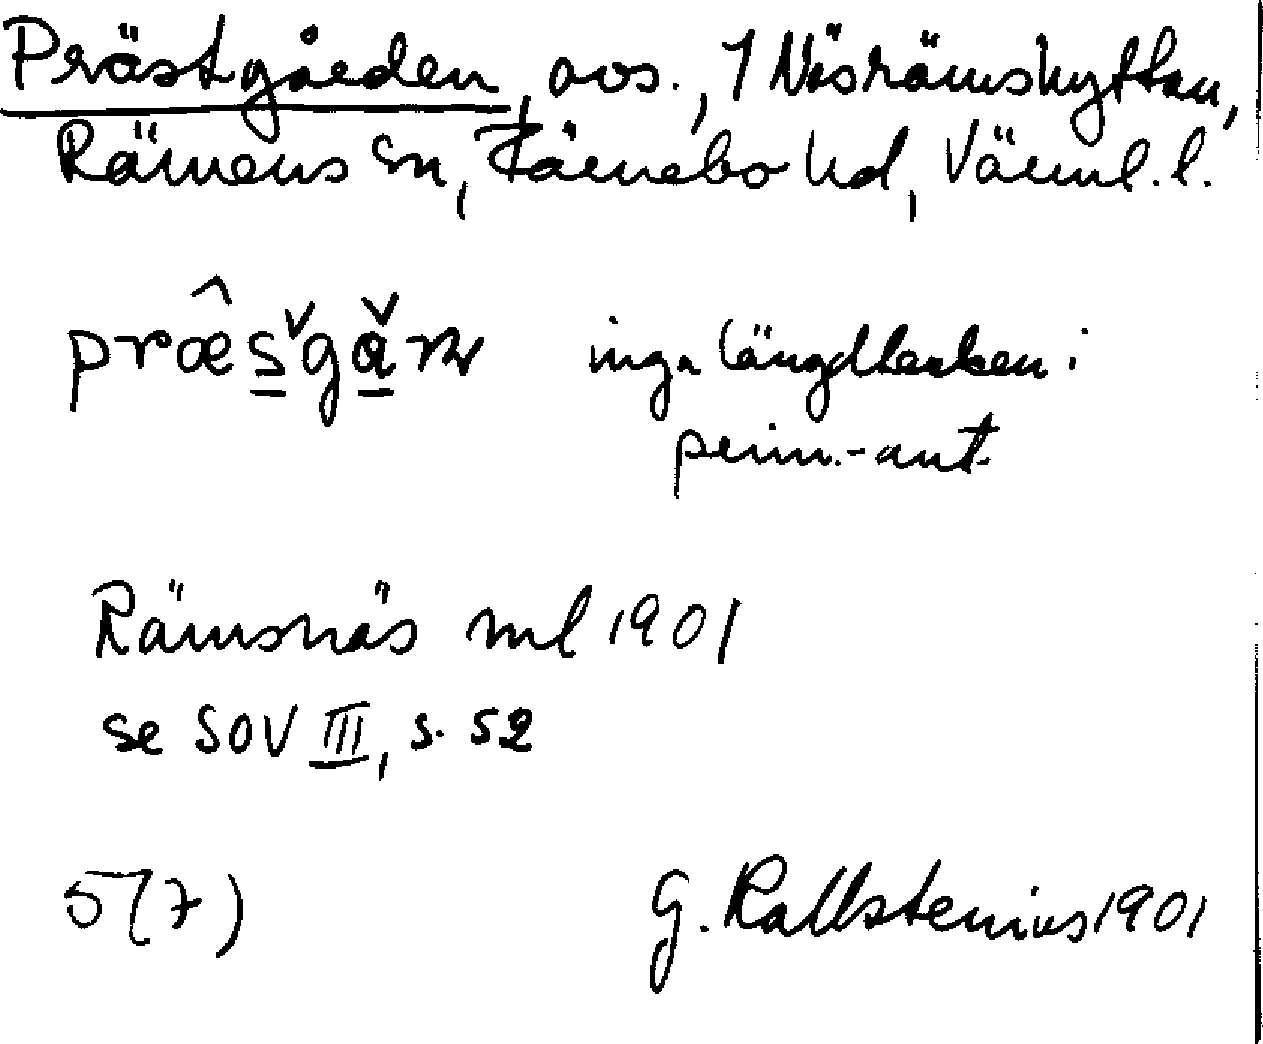 Prästgården, avs., 1 Näsrämshyttan,
Rämens sn, Färnebo hd, Värml. l.
præs̱ga̱rn inga längdtecken i
prim.-ant.
Rämsnäs ml 1901
se SOV III, s. 52
5(7) G. Kallstenius 1901